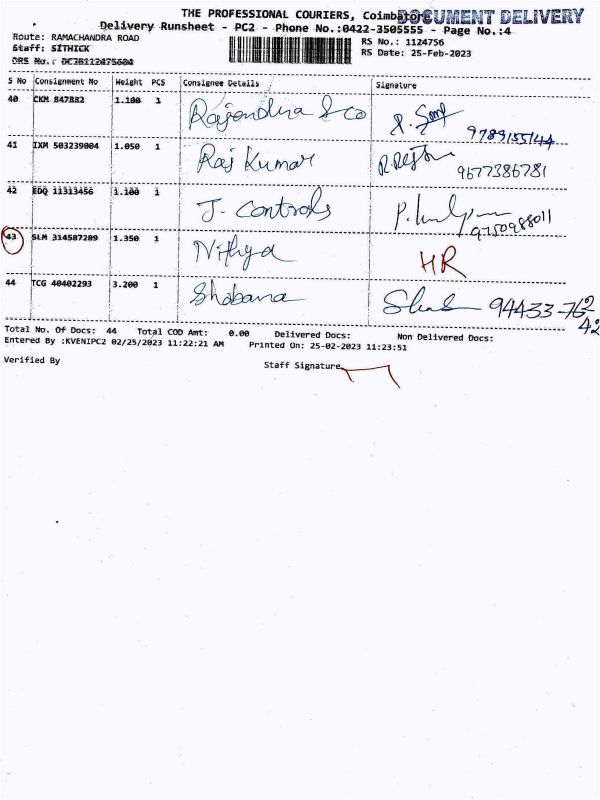 THE PROFESSIONAL COURIERS, Coimbatore
DOCUMENT DELIVERY
Delivery Runsheet - PC2 - Phone No.:0422-3505555 - Page No.:4
Route: RAMACHANDRA ROAD
RS No.: 1124756
Staff: SITHICK
RS Date: 25-Feb-2023
DRS No.: DC3B112475604
S No Consignment No Weight PCS Consignee Details Signature
40 CKM 847882 1.100 1 Rajendra & co 9789155144
41 IXM 503239004 1.050 1 Raj Kumar 9677386781
42 EDQ 11313456 1.100 1 J. Controls 9750988011
43 SLM 314587289 1.350 1 Nithya HR
44 TCG 40402293 3.200 1 Shobana 94433-762
42
Total No. Of Docs: 44 Total COD Amt: 0.00 Delivered Docs: Non Delivered Docs:
Entered By :KVENIPC2 02/25/2023 11:22:21 AM Printed On: 25-02-2023 11:23:51
Verified By
Staff Signature